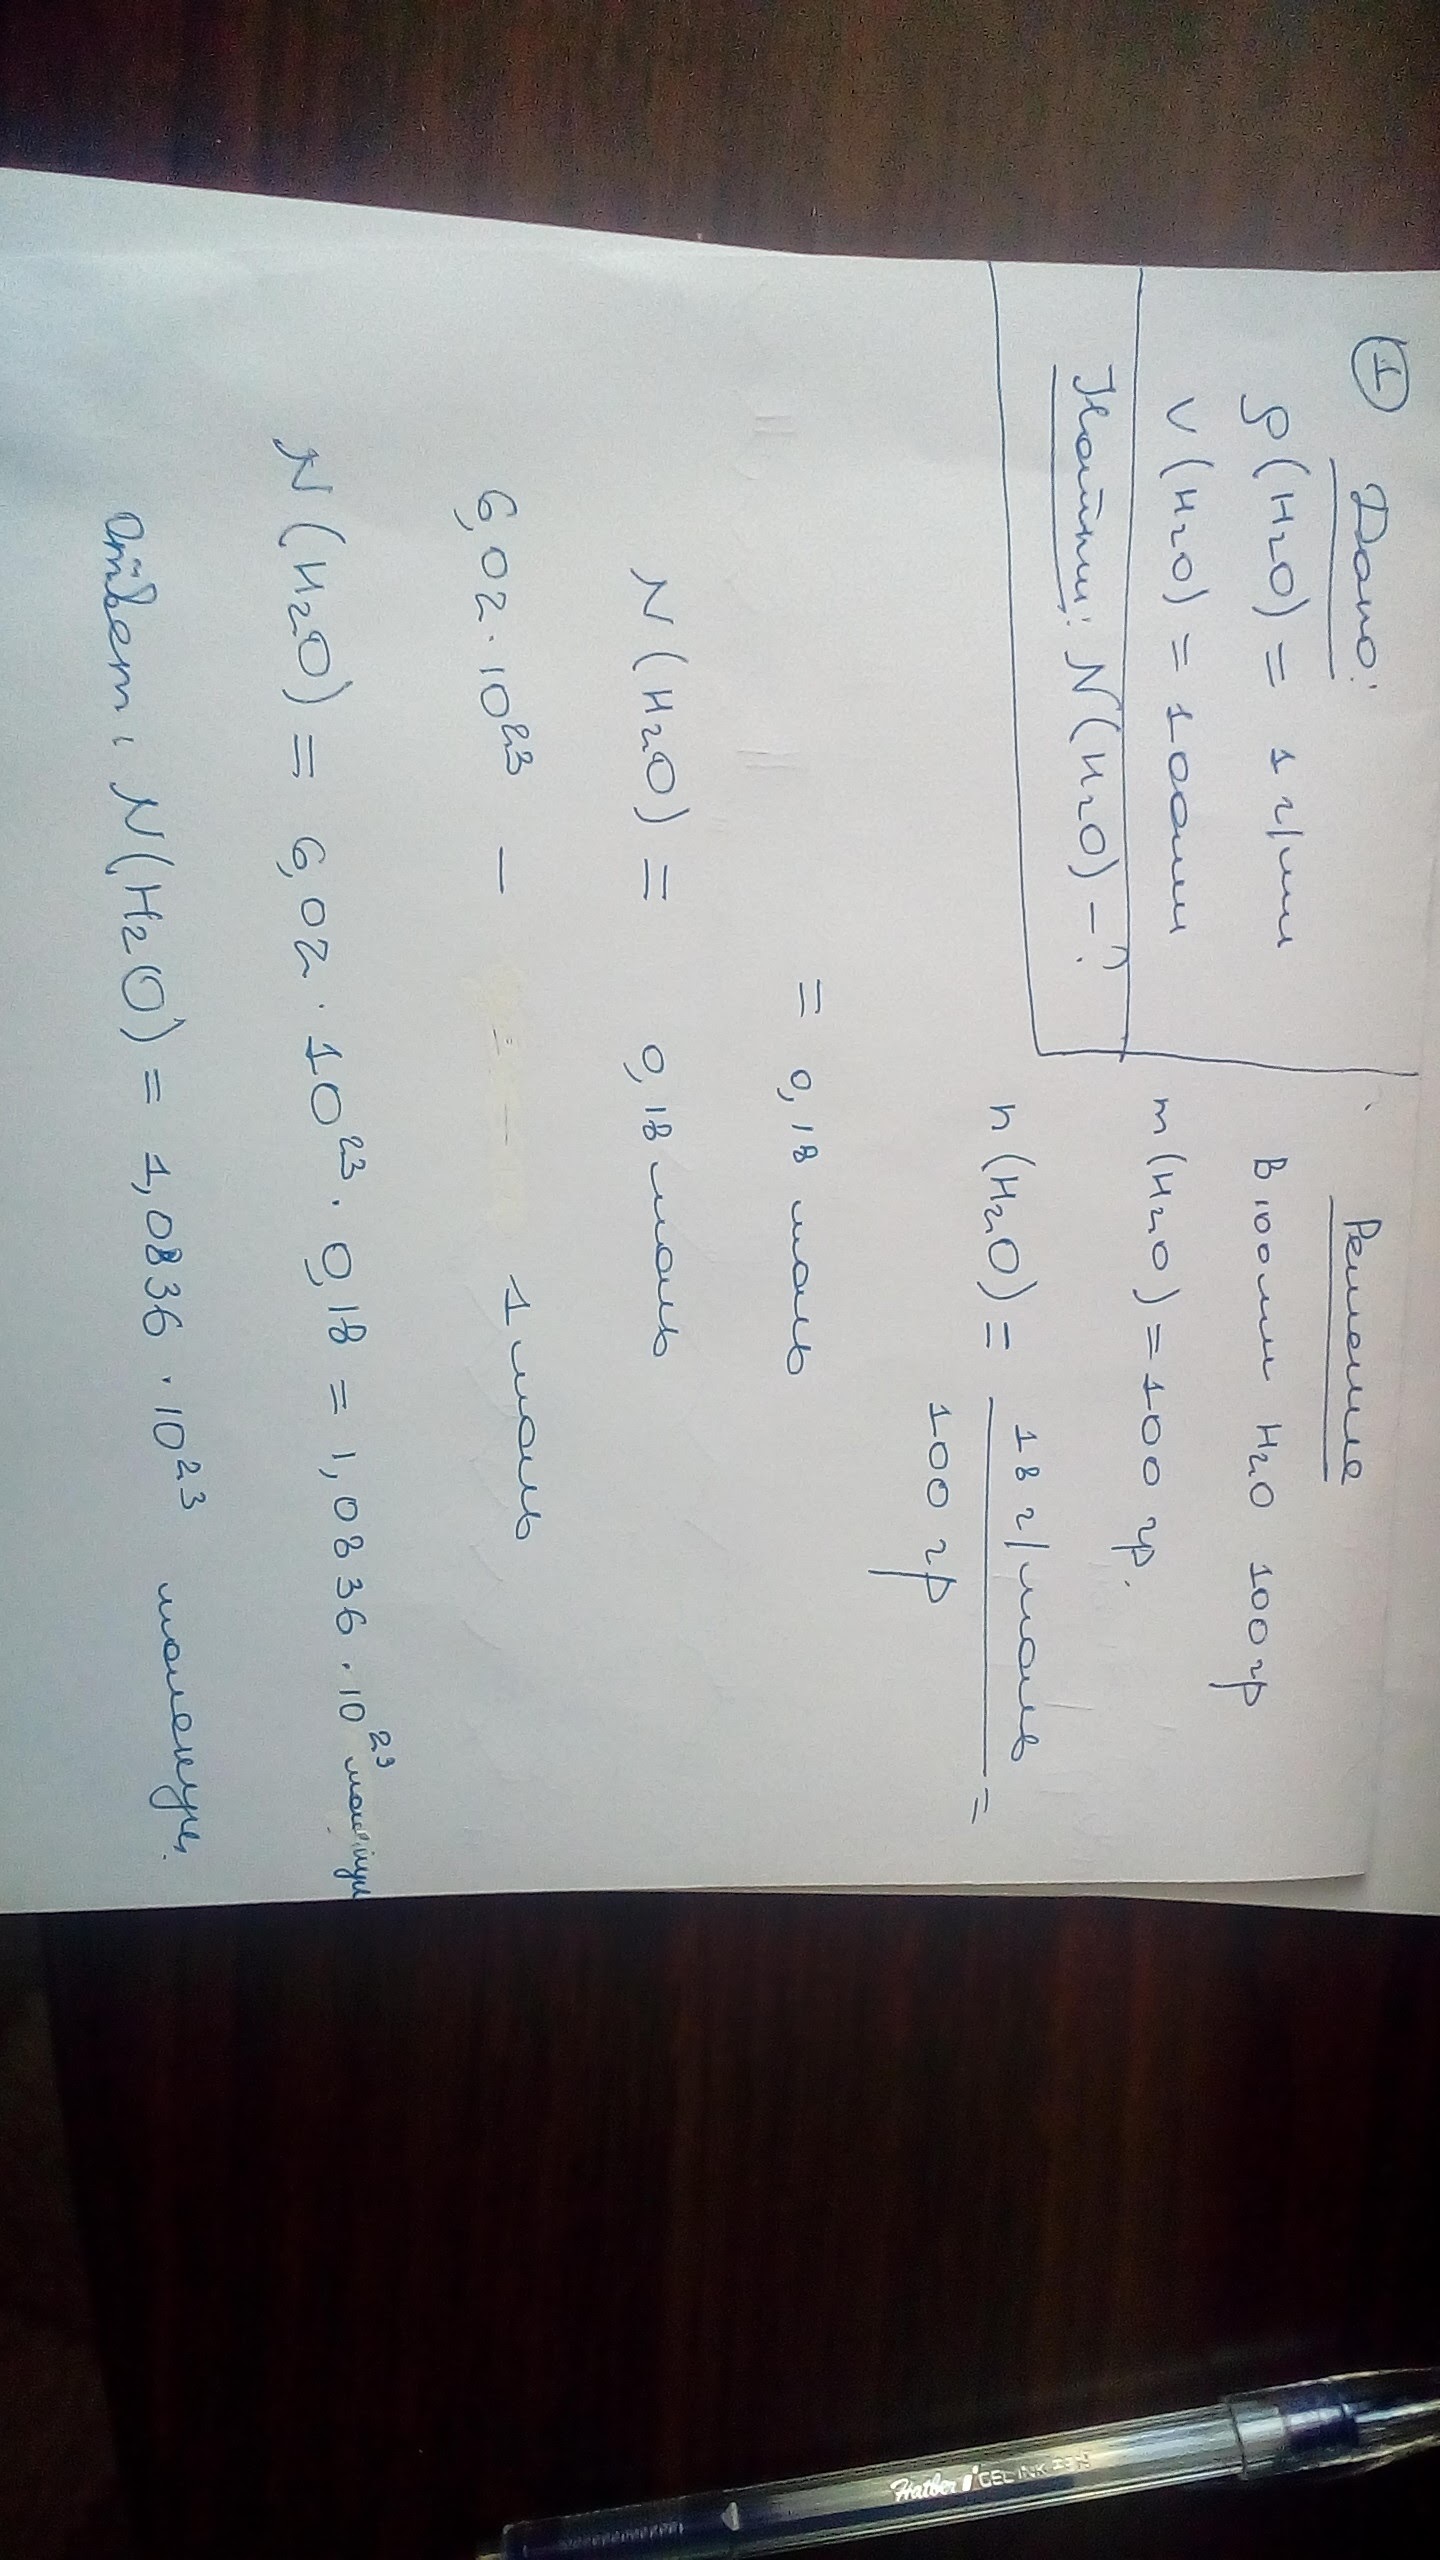 1 Дано:
ρ(H2O) = 1 г/мл
V(H2O) = 100мл
Найти: N(H2O) - ?
Решение
В 100мл H2O 100 гр
m(H2O) = 100 гр.
n(H2O) = 18 г/моль / 100 гр =
= 0,18 моль
N(H2O) = 0,18 моль
6,02 · 10^23 — 1 моль
N(H2O) = 6,02 · 10^23 · 0,18 = 1,0836 · 10^23 молекул
Ответ: N(H2O) = 1,0836 · 10^23 молекул.
Hatber GEL INK